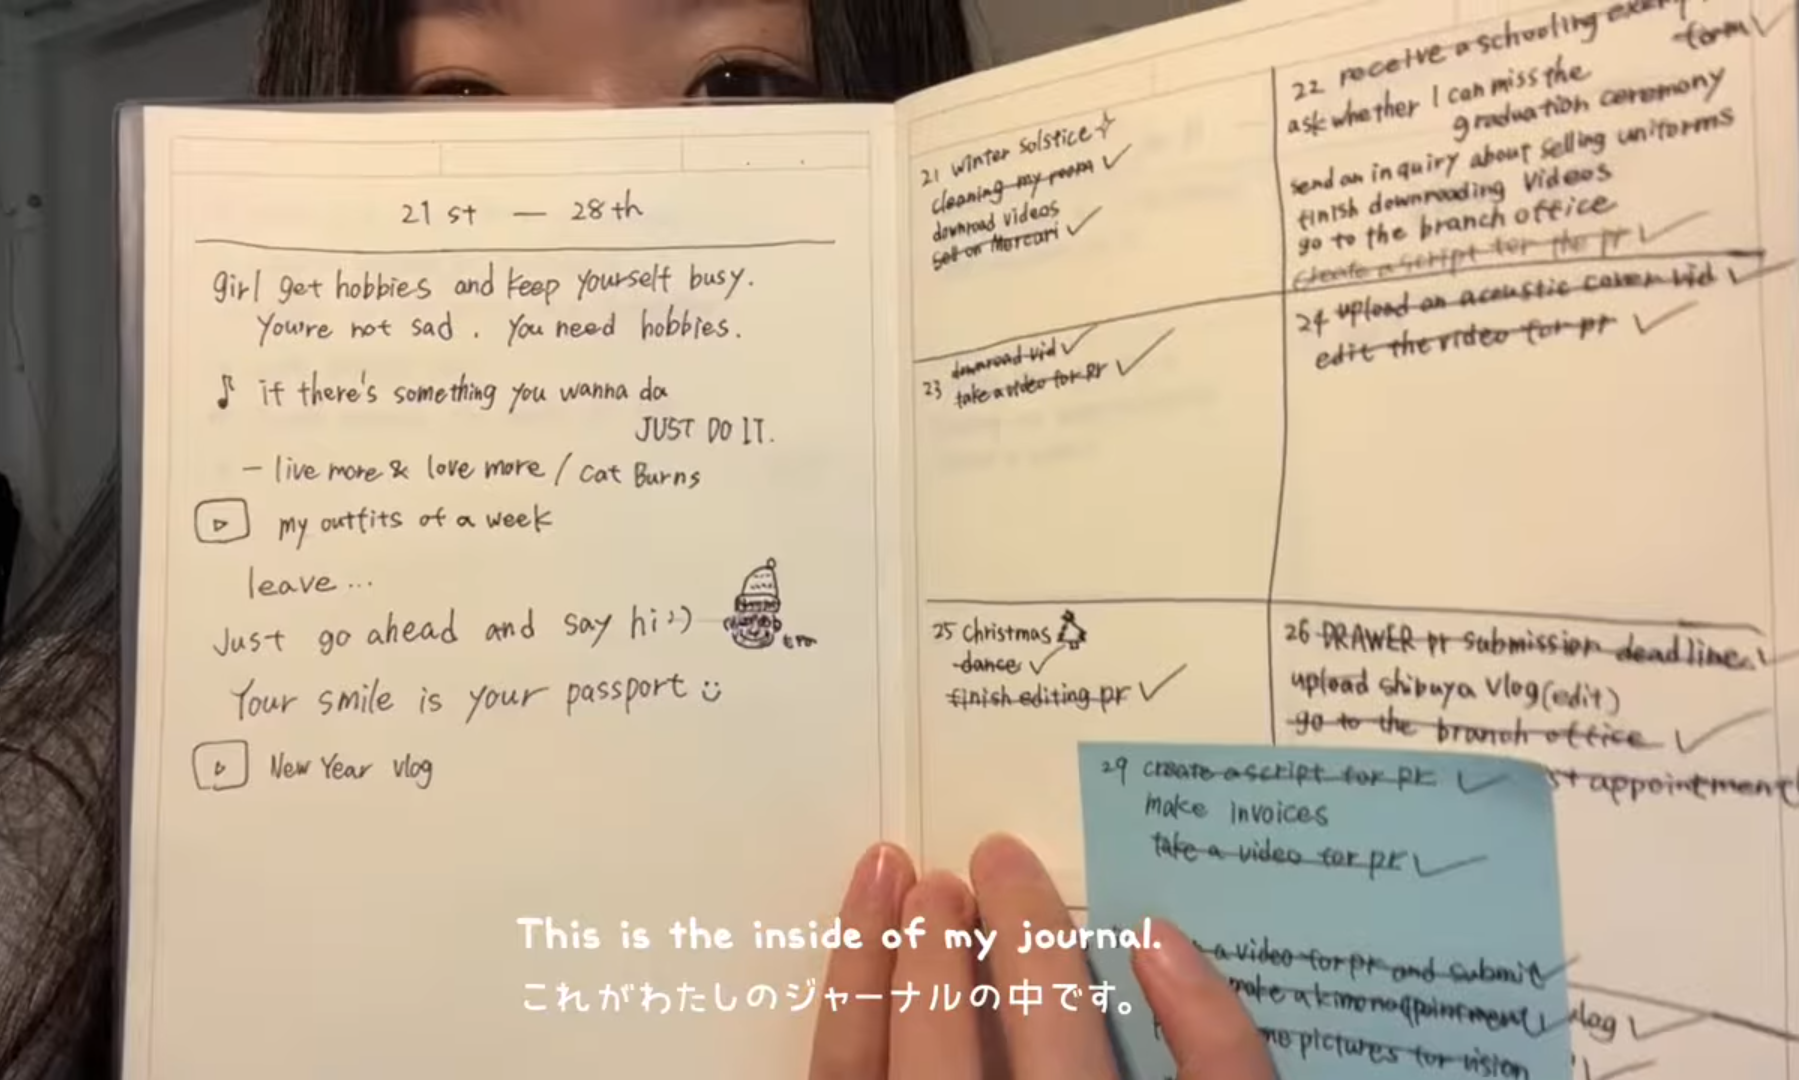 21 st — 28 th
girl get hobbies and keep yourself busy.
You're not sad. You need hobbies.
♪ if there's something you wanna do
JUST DO IT.
— live more & love more / Cat Burns
my outfits of a week
leave...
Just go ahead and say hi :)
Your smile is your passport
New Year vlog
21 winter solstice
cleaning my room ✓
downroad videos
sell on Mercari ✓
22 receive a schooling
form ✓
ask whether I can miss the
graduation ceremony
send an inquiry about selling uniforms
finish downroading videos
go to the branch office
create a script for the pr ✓
23 downroad vid ✓
take a video for pr ✓
24 upload an acoustic cover vid ✓
edit the video for pr ✓
25 Christmas
dance ✓
finish editing pr ✓
26 DRAWER pr submission deadline ✓
upload shibuya vlog (edit)
go to the branch office ✓
appointment
29 create a script for pr ✓
make invoices
take a video for pr ✓
a video for pr and submit ✓
make a kimono appointment ✓
vlog ✓
pictures for vision
This is the inside of my journal.
これがわたしのジャーナルの中です。